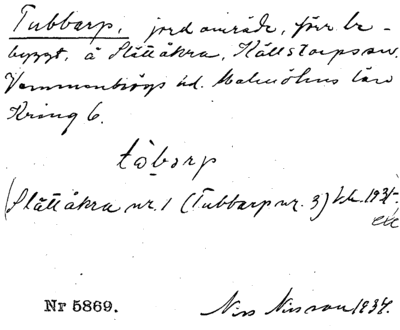 Tubbarp, jordområde, förr be-
byggt, å Slättåkra, Källstorps sn.
Vemmenhögs hd. Malmöhus län
Kring 6.
tåbarp
(Slättåkra nr. 1 (Tubbarp nr. 3)
Nr 5869. Nils Nilsson 1934.